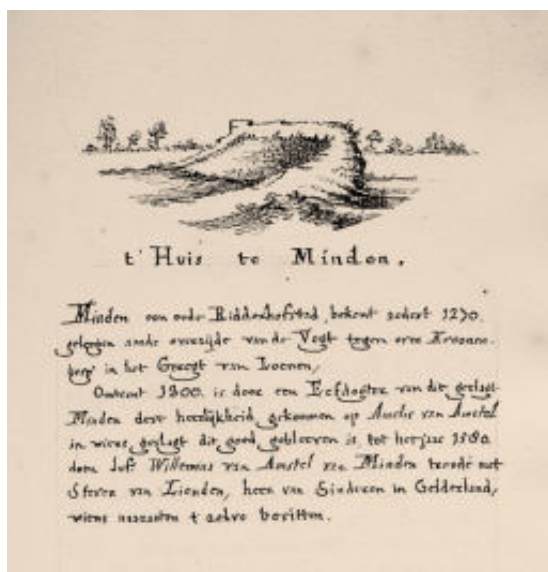 t' Huis te Minden.
Minden een oude Ridderhofstad, bekent sedert 1270.
gelegen aande overzijde van de Vegt tegen over Kroonen-
berg in het Gregt van Loenen,
Omtrent 1300. is door een Erfdogter van dit geslagt
Minden deze heerlijkheid gekomen op Amelis van Amstel
in wiens geslagt dit goed gebleeven is tot het jaar 1580
dat Juff Willemina van Amstel van Minden trouwde met
Steven van Lienden, heer van in Gelderland,
wiens nazaten t zelve bezitten.